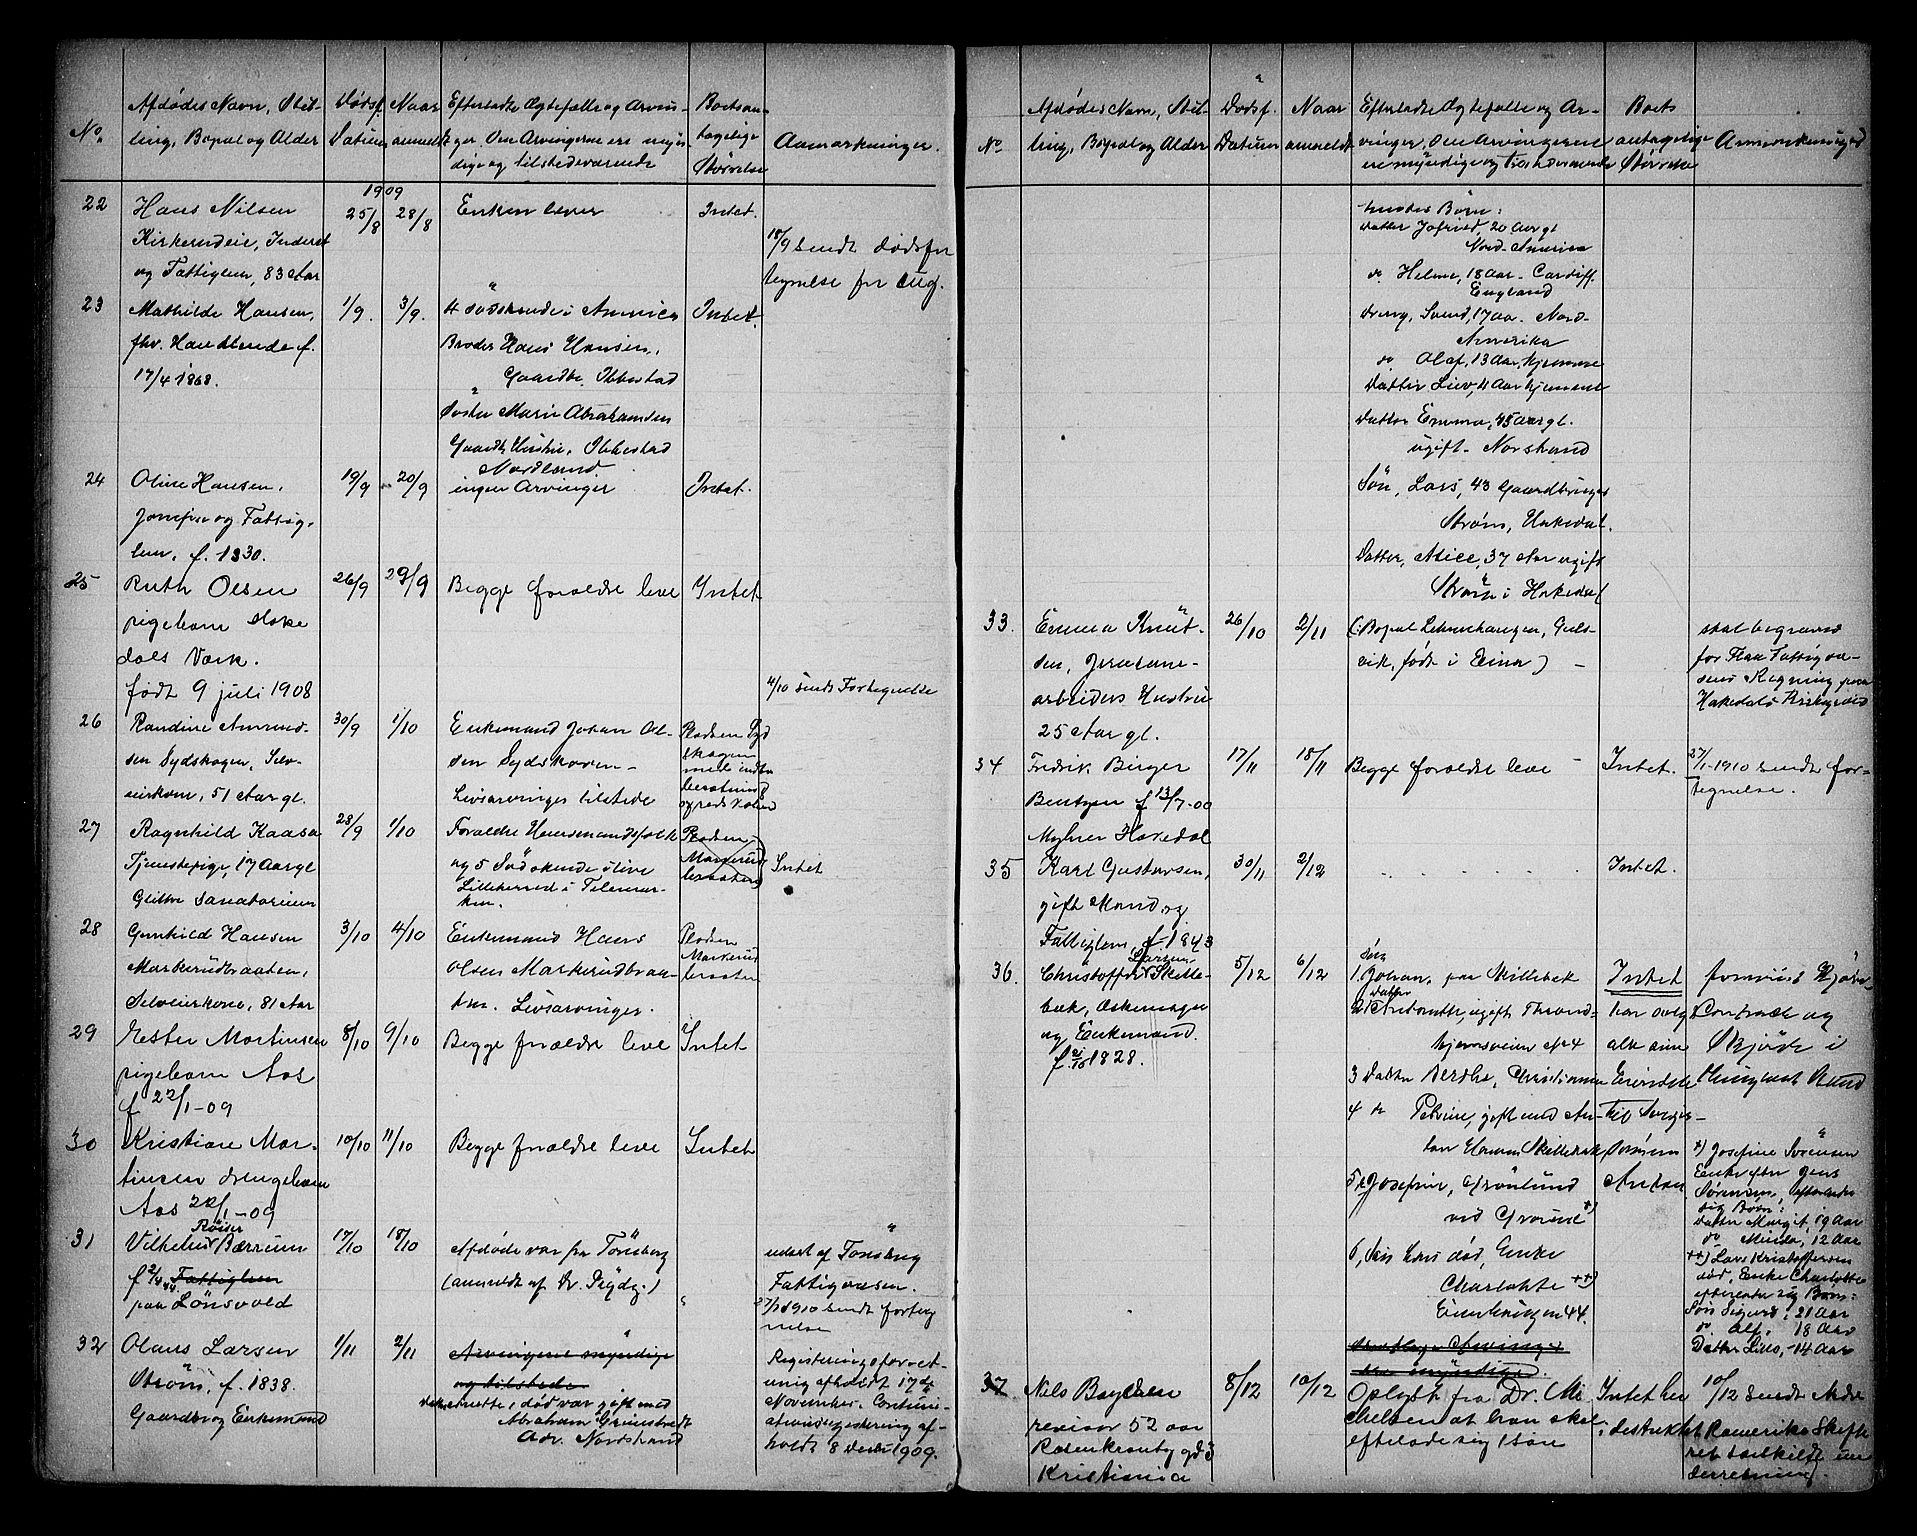 No.
Afdødes Navn, Stil-
ling, Bopæl og Alder
Dødsf.
Datum
Naar
anmeldt
Efterladte Ægtefælle og Arvin-
ger. Om Arvingerne ere myn-
dige og tilstedeværende
Boets an-
tagelige
Størrelse
Anmærkninger.
1909
22
Hans Nilsen
Kirkerudeie, Inderst
og Fattiglem, 83 Aar
25/8
28/8
Enken lever
Intet.
18/9 sendt dødsfor
tegnelse for Aug.
23
Mathilde Hansen,
fhv. Handlende f.
17/4 1868.
1/9.
3/9.
4 Sødskende i America
Broder Hans Hansen,
Gaardbr. Ibbestad
Søster Marie Abrahamsen
Gaardbr. Hustru, Ibbestad
Nordland.
Intet.
24
Oline Hansen,
Jomfru og Fattig-
lem, f. 1830.
19/9
20/9
ingen Arvinger
Intet.
25
Ruth Olsen
pigebarn Hake
dals Værk.
født 9 juli 1908
26/9
29/9
Begge forældre leve
Intet
4/10 sendt Fortegnelse
26
Randine Amund-
sen Sydskogen, Selv-
eierkone, 51 Aar gl.
30/9
1/10
Enkemand Johan Ol-
sen Sydskoven -
Livsarvinger tilstede
Pladsen Syd
skogen
med indbo
besætning
og redskaber
27
Ragnhild Kaasa
Tjenestepige, 17 Aar gl
Glitre Sanatorium
28/9
1/10
Forældre Huusmandsfolk
og 5 Sødskende ilive
Lilleherred i Telemar-
ken.
Pladsen
Markerud
braaten
Intet
28
Gunhild Hansen
Markerudbraaten,
Selveierkone, 81 Aar
3/10
4/10
Enkemand Hans
Olsen Markerudbraa-
ten. Livsarvinger.
Pladsen
Markerud
braaten
29
Ester Martinsen
pigebarn Aas
f 22/1-09
8/10
9/10
Begge forældre leve
Intet
30
Kristian Mar-
tinsen drengebarn
Aas 22/1-09
10/10
11/10
Begge forældre leve
Intet
31
Røiser
Vilhelm Bærrum
Fattiglem
paa Lønsvold
17/10
18/10
Afdøde var fra Tønsberg
(anmeldt af Dr. Prydz.)
udsat af Tønsberg
Fattigvæsen.
27/1 1910 sendt forteg
nelse
32
Olaus Larsen
Strøm, f. 1838.
Gaardbr og Enkemand
1/11
2/11
Arvingerne myndige
og tilstede
død var gift med
Abraham Grimstvedt
Adr. Nordstrand
Registeringsforret-
ning afholdt 17de
November. Contuni-
ationsregistering af-
holdt 8 Decbr 1909.
No
Afdødes Navn, Stil-
ling, Bopæl og Alder
Dødsf.
Datum
Naar
anmeldt
Efterladte Ægtefælle og Ar-
vinger, Om Arvingerne
ere myndige og tilstedeværende
Boets
antagelige
Størrelse
Anmærkninger
hendes Børn:
Datter Jofrid, 20 Aar gl
Nord-Amerika
do Helene, 18 Aar - Cardiff.
England
dreng, Svend, 17 aa. Nord-
Amerika
do Olaf, 13 Aar, hjemme
Datter Liev, 11 Aar hjemme
Datter Emma, 45 Aar gl.
ugift. Norstrand
Søn, Lars, 43 Gaardbruger
Strøm, Hakedal.
Datter, Alice, 37 Aar ugift
Strøm i Hakedal
33.
Emma Knut-
sen,
arbeiders Hustru
25 Aar gl.
26/10
2/11
(Bopæl Lehnehaugen, Guls-
vik, født i Eina) -
skal begraves
for Flaa Fattigvæ-
sens Regning paa
Hakedals Kirkegaard
34
Fredrik Birger
Bentzen f 13/7-00
Myhrer Hakedal
17/11
18/11
Begge forældre leve -
Intet.
27/1-1910 sendt for-
tegnelse.
35
Karl Gustavsen,
gift Mand og
Fattiglem, f-1843
30/11
2/12
Intet.
36.
Larsen,
Christoffer Skille-
bæk,
og Enkemand.
1828.
5/12
6/12
Søn
1. Johan, paa Skillebæk
Datter
2. Antonette, ugift Thrond-
hjemsveien No 4
3 Datter Berthe, Christiania
4 do Petrine, gift med An-
ton Hansen Skillebæk
5 do Josefine, Grønlund
ved Grorud +)
6, Søn Lars død, Enke
Charlotte ++)
44.
Intet
har solgt
alle sine
Eiendele
til Svoger-
sønnen
Anton
forevist Kjøbe-
Contract og
Skjøde i
thinglæst Stand
+) Josefine Sørensen
Enke efter Jens
Sørensen, efterladt
sig Børn:
Datter Margit, 19 Aar
do Minda, 12 Aar
++) Lars Kristoffersen
død, Enke Charlotte
efterlader sig Børn:
Søn Sigurd, 21 Aar
do. Alf, 18 Aar
Datter Lilli, - 14 Aar
37
Nils Baydsen
revisor 52 aar
Rosenkrantz gd 3
Kristiania
8/12
10/12
Oplyst fra Dr. Mi
chelsen at han skal
efterlade sig 1 Søn
Intet her
i. distriktet
10/12 sendt Nedre
Romerike Skifte
ret tilskilt un
derretning.